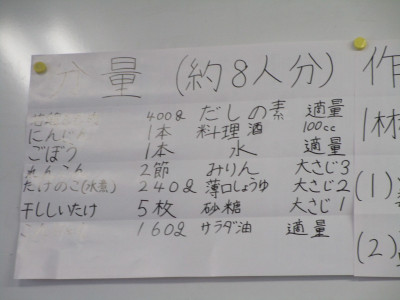 分量 (約8人分)
400g だしの素 適量
にんじん 1本 料理酒 100cc
ごぼう 1本 水 適量
れんこん 2節 みりん 大さじ3
たけのこ(水煮) 240g 薄口しょうゆ 大さじ2
干ししいたけ 5枚 砂糖 大さじ1
160g サラダ油 適量
作
1材
(1)
(2)